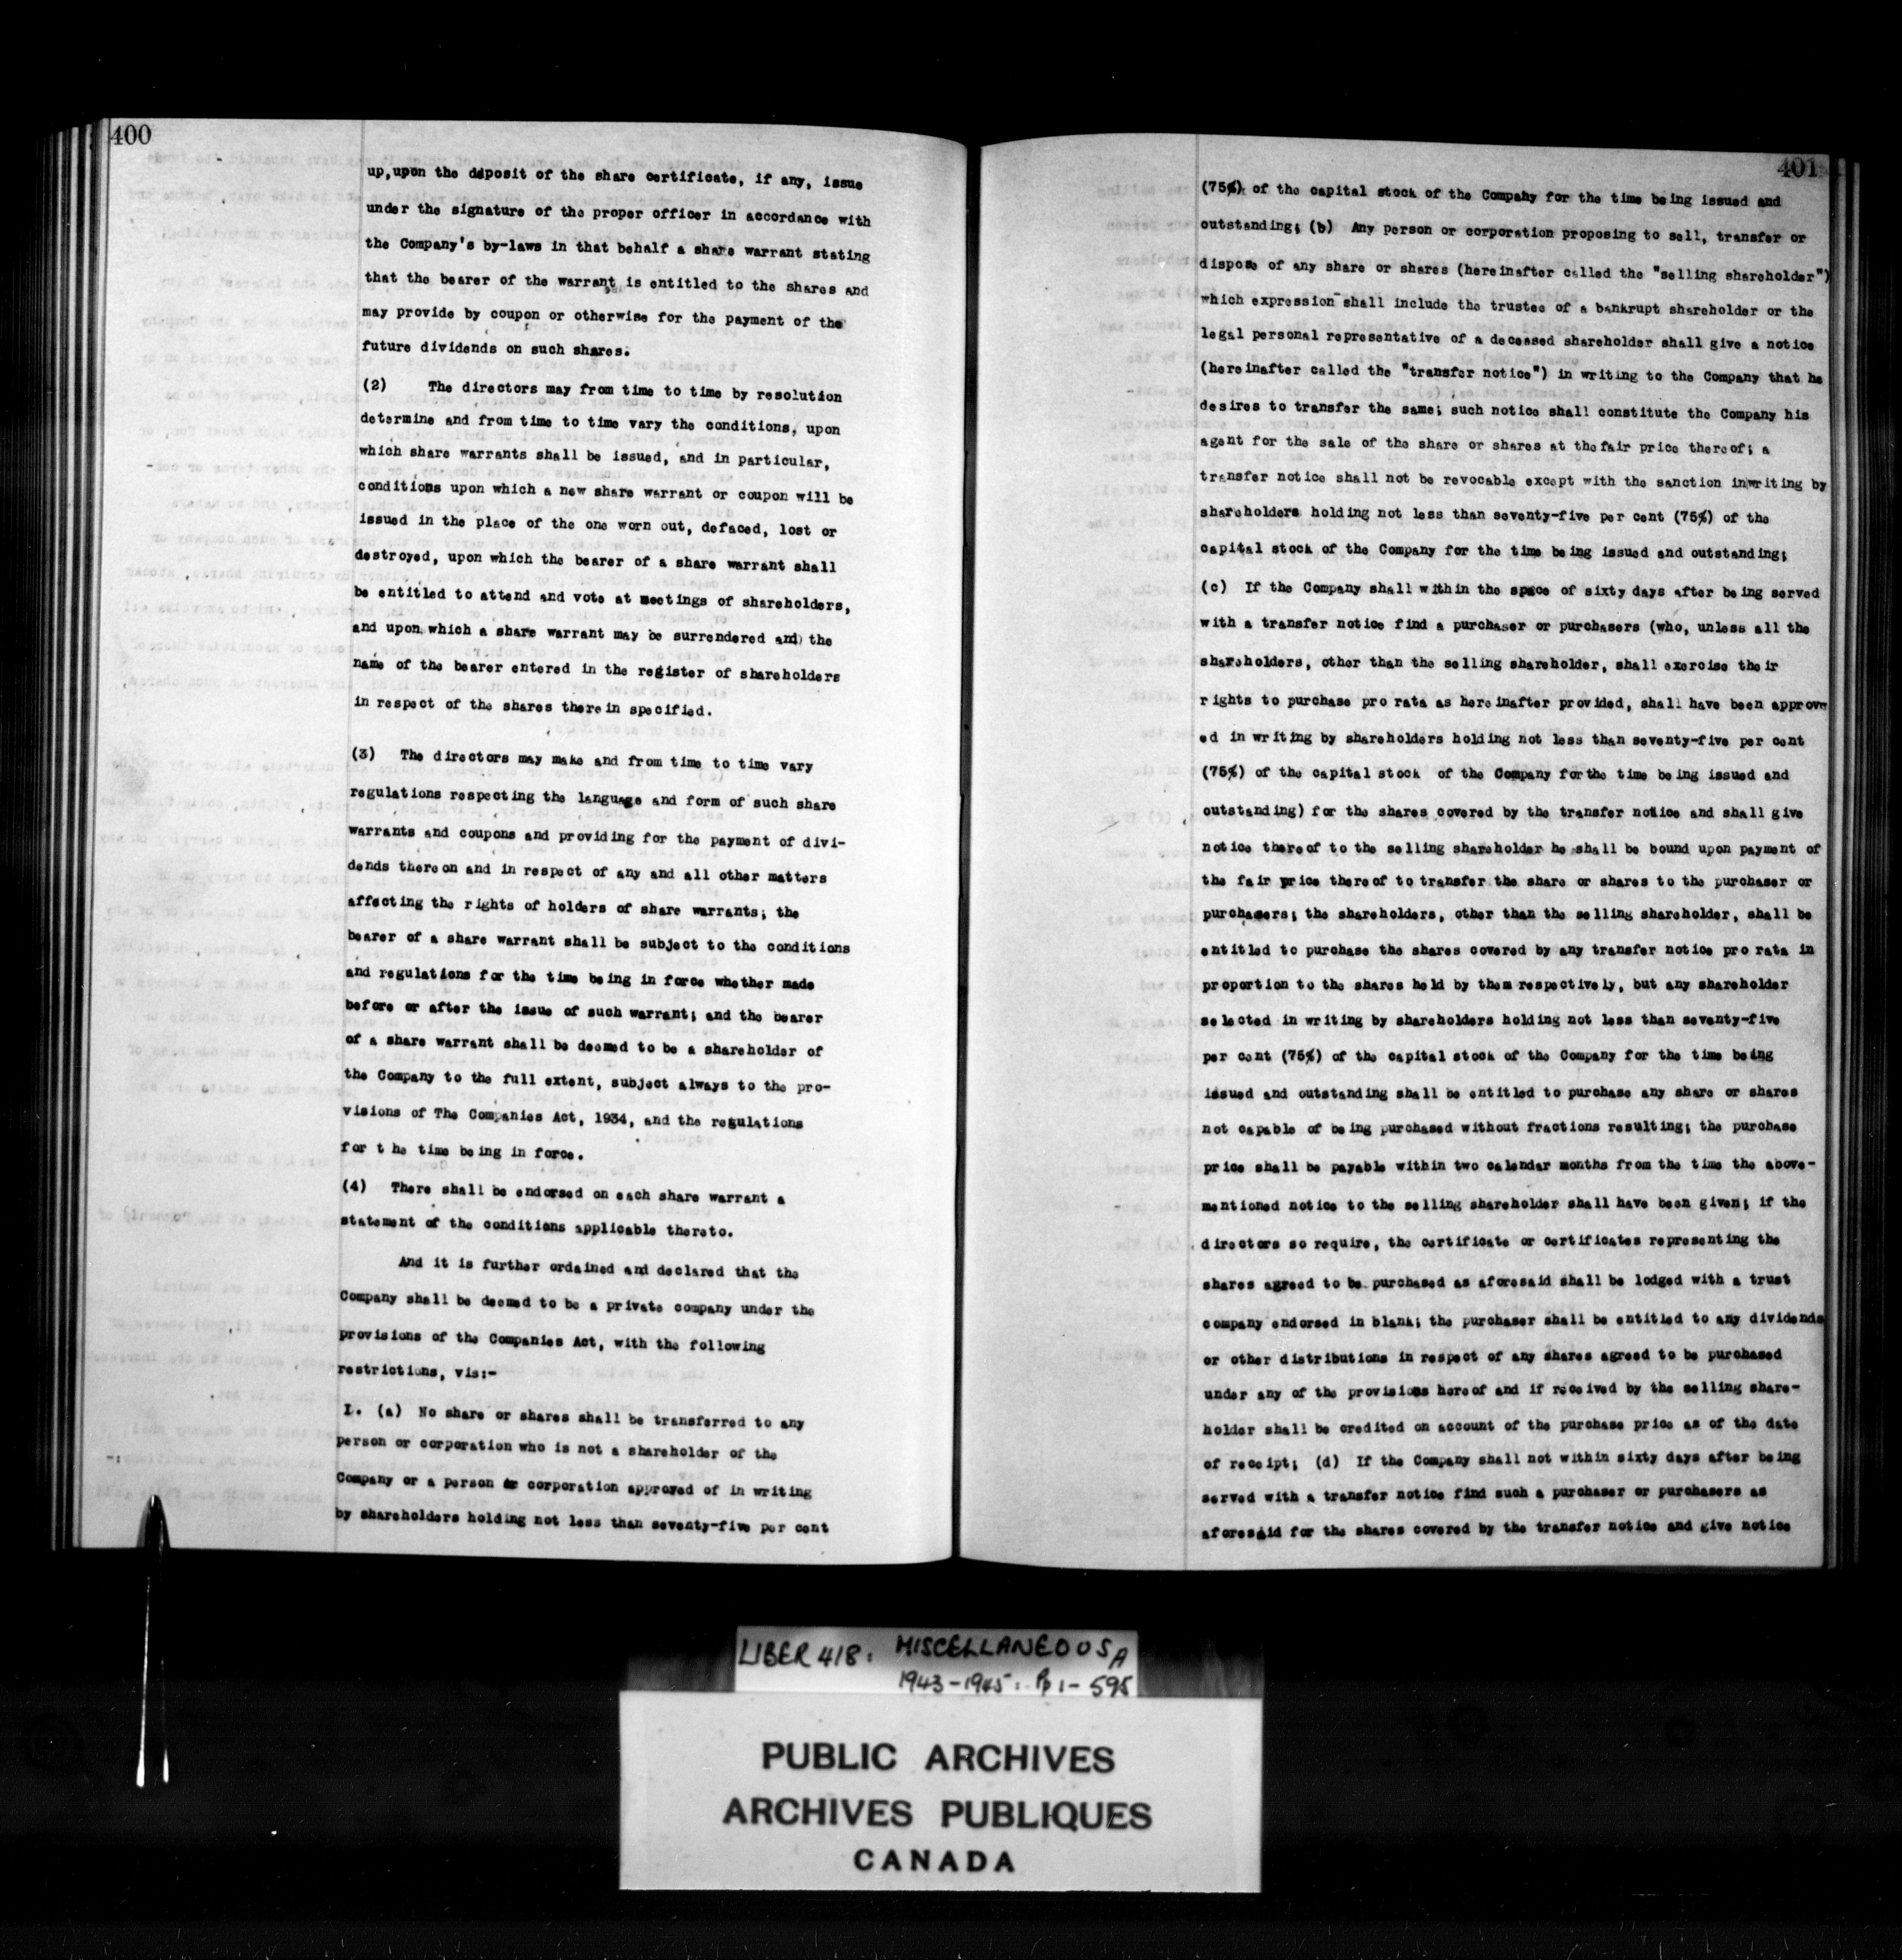 400
up,upon the deposit of the share certificate, if any, issue
under the signature of the proper officer in accordance with
the Company's by-laws in that behalf a share warrant stating
that the bearer of the warrant is entitled to the shares and
may provide by coupon or otherwise for the payment of the
future dividends on such shares.
(2) The directors may from time to time by resolution
determine and from time to time vary the conditions, upon
which share warrants shall be issued, and in particular,
conditions upon which a new share warrant or coupon will be
issued in the place of the one worn out, defaced, lost or
destroyed, upon which the bearer of a share warrant shall
be entitled to attend and vote at meetings of shareholders,
and upon which a share warrant may be surrendered and the
name of the bearer entered in the register of shareholders
in respect of the shares therein specified.
(3) The directors may make and from time to time vary
regulations respecting the language and form of such share
warrants and coupons and providing for the payment of divi-
dends thereon and in respect of any and all other matters
affecting the rights of holders of share warrants; the
bearer of a share warrant shall be subject to the conditions
and regulations for the time being in force whether made
before or after the issue of such warrant; and the bearer
of a share warrant shall be deemed to be a shareholder of
the Company to the full extent, subject always to the pro-
visions of The Companies Act, 1934, and the regulations
for t he time being in force.
(4) There shall be endorsed on each share warrant a
statement of the conditions applicable thereto.
And it is further ordained and declared that the
Company shall be deemed to be a private company under the
provisions of the Companies Act, with the following
restrictions, vis:-
I. (a) No share or shares shall be transferred to any
person or corporation who is not a shareholder of the
Company or a person or corporation approved of in writing
by shareholders holding not less than seventy-five per cent
401
(75%) of the capital stock of the Company for the time being issued and
outstanding; (b) Any person or corporation proposing to sell, transfer or
dispose of any share or shares (hereinafter called the "selling shareholder")
which expression shall include the trustee of a bankrupt shareholder or the
legal personal representative of a deceased shareholder shall give a notice
(hereinafter called the "transfer notice") in writing to the Company that he
desires to transfer the same; such notice shall constitute the Company his
agent for the sale of the share or shares at thefair price thereof; a
transfer notice shall not be revocable except with the sanction inwriting by
shareholders holding not less than seventy-five per cent (75%) of the
capital stock of the Company for the time being issued and outstanding;
(c) If the Company shall within the space of sixty days after being served
with a transfer notice find a purchaser or purchasers (who, unless all the
shareholders, other than the selling shareholder, shall exercise their
rights to purchase pro rata as hereinafter provided, shall have been approv
ed in writing by shareholders holding not less than seventy-five per cent
(75%) of the capital stock of the Company forthe time being issued and
outstanding) for the shares covered by the transfer notice and shall give
notice thereof to the selling shareholder he shall be bound upon payment of
the fair price thereof to transfer the share or shares to the purchaser or
purchasers; the shareholders, other than the selling shareholder, shall be
entitled to purchase the shares covered by any transfer notice pro rata in
proportion to the shares held by them respectively, but any shareholder
selected in writing by shareholders holding not less than seventy-five
per cent (75%) of the capital stock of the Company for the time being
issued and outstanding shall be entitled to purchase any share or shares
not capable of being purchased without fractions resulting; the purchase
price shall be payable within two calendar months from the time the above-
mentioned notice to the selling shareholder shall have been given; if the
directors so require, the certificate or certificates representing the
shares agreed to be purchased as aforesaid shall be lodged with a trust
company endorsed in blank; the purchaser shall be entitled to any dividends
or other distributions in respect of any shares agreed to be purchased
under any of the provisions hereof and if received by the selling share-
holder shall be credited on account of the purchase price as of the date
of receipt; (d) If the Company shall not within sixty days after being
served with a transfer notice find such a purchaser or purchasers as
aforesaid for the shares covered by the transfer notice and give notice
LIBER 418: MISCELLANEOUS A
1943-1945: Pp 1-595
PUBLIC ARCHIVES
ARCHIVES PUBLIQUES
CANADA